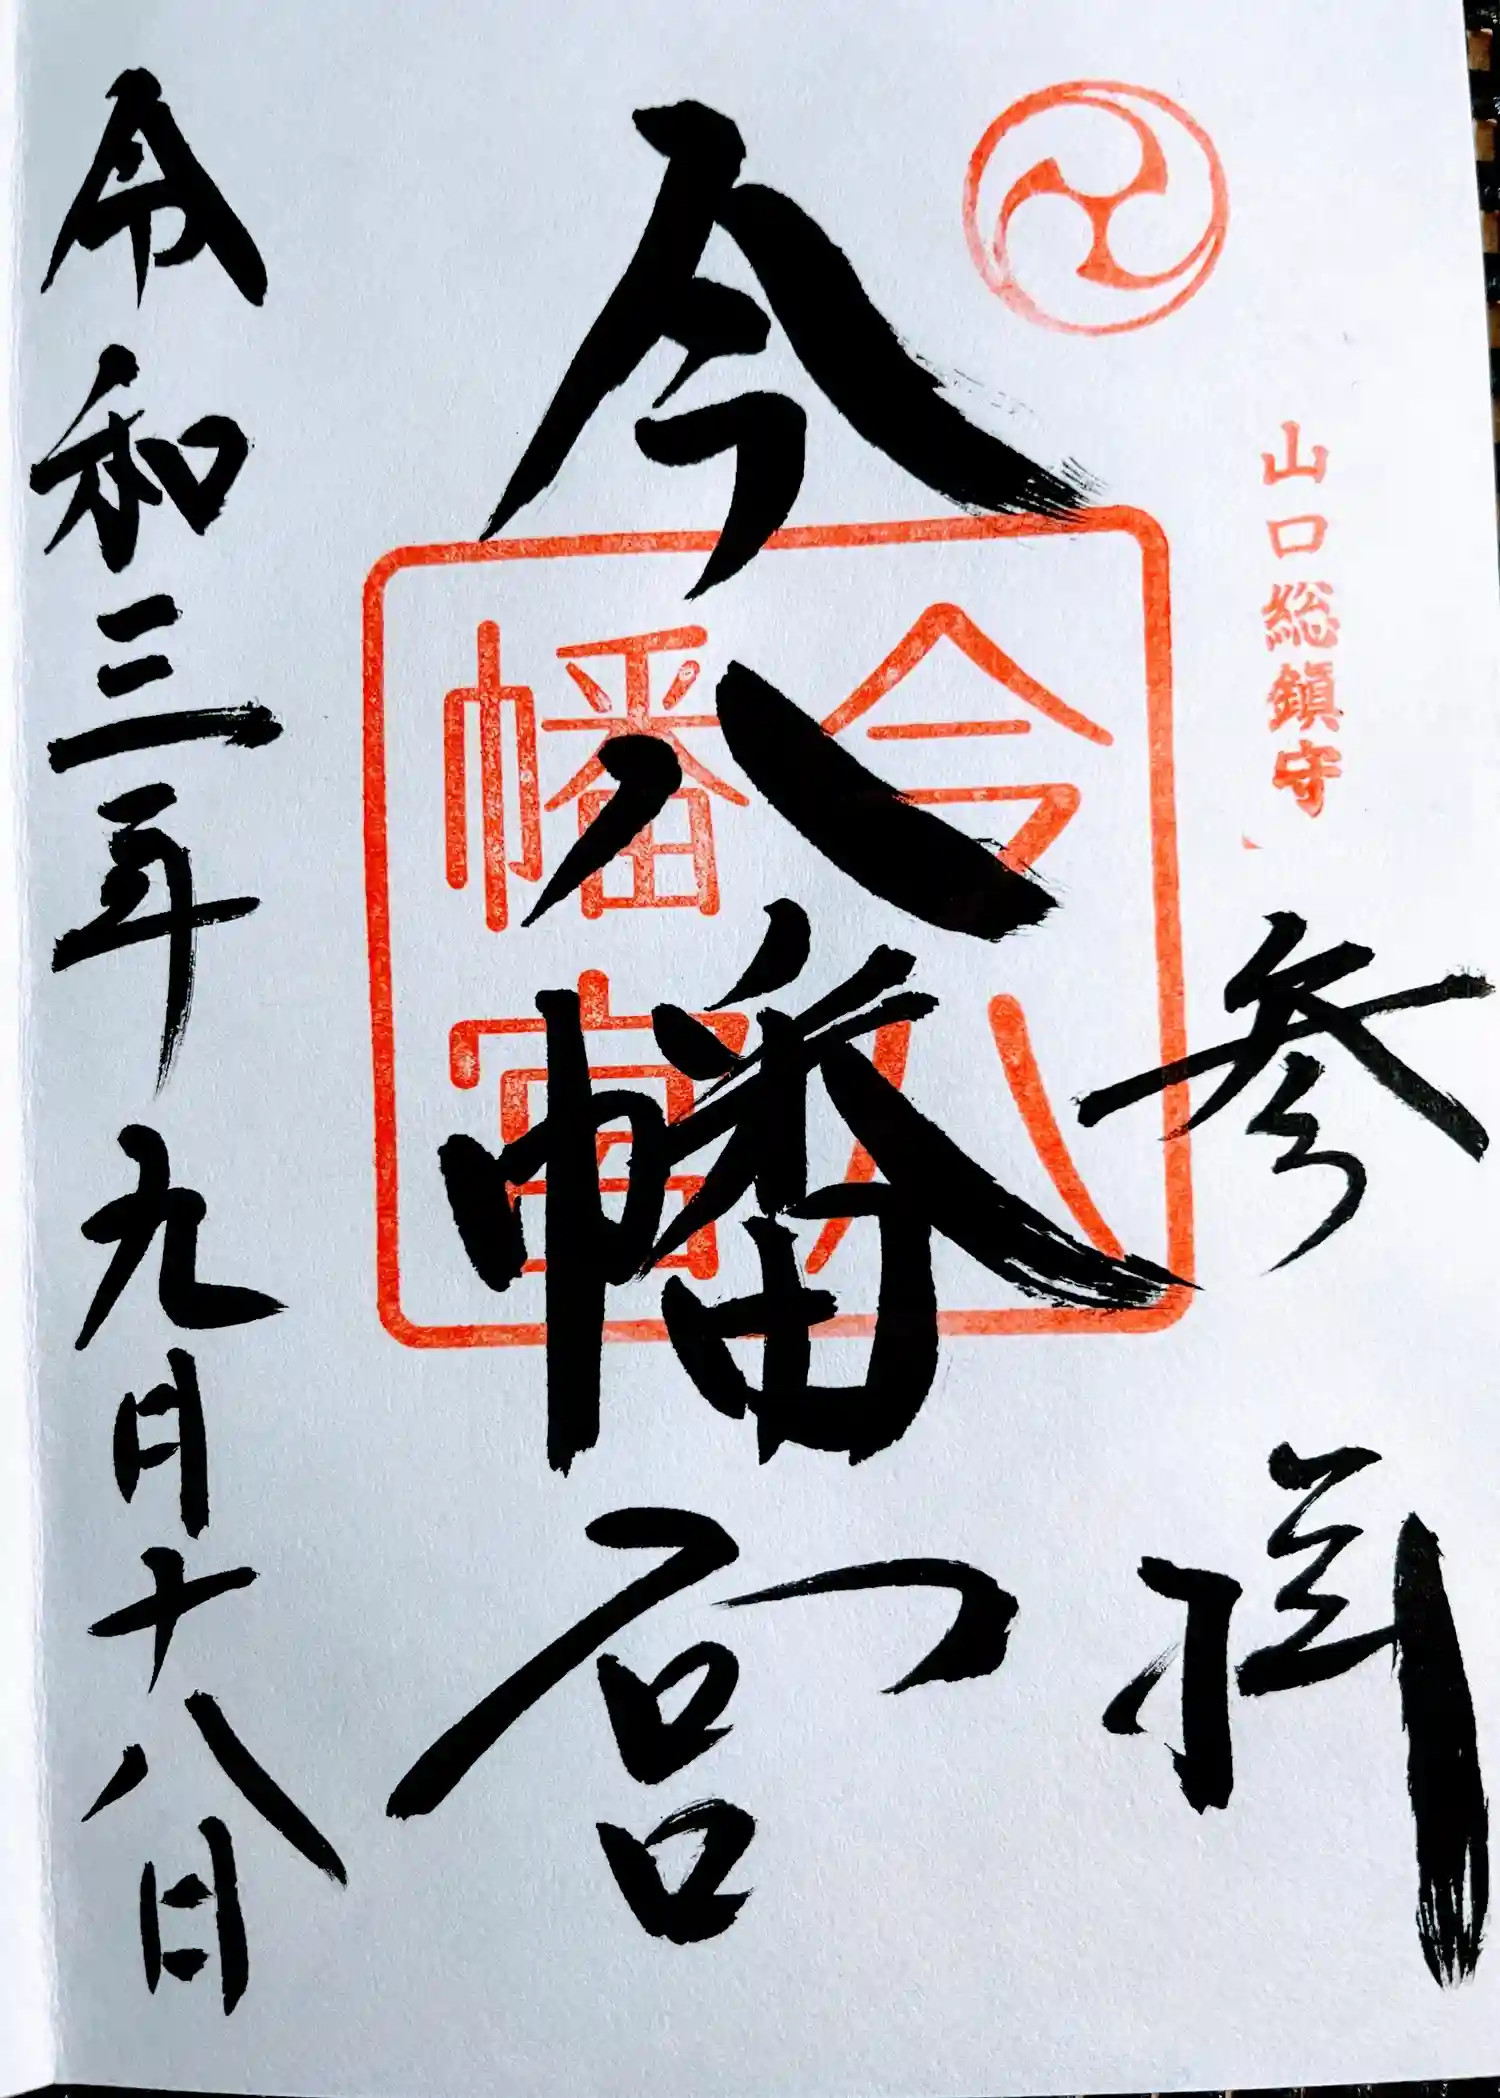 山口総鎮守
参拝
今八幡宮
今八
幡宮
令和三年九月十八日